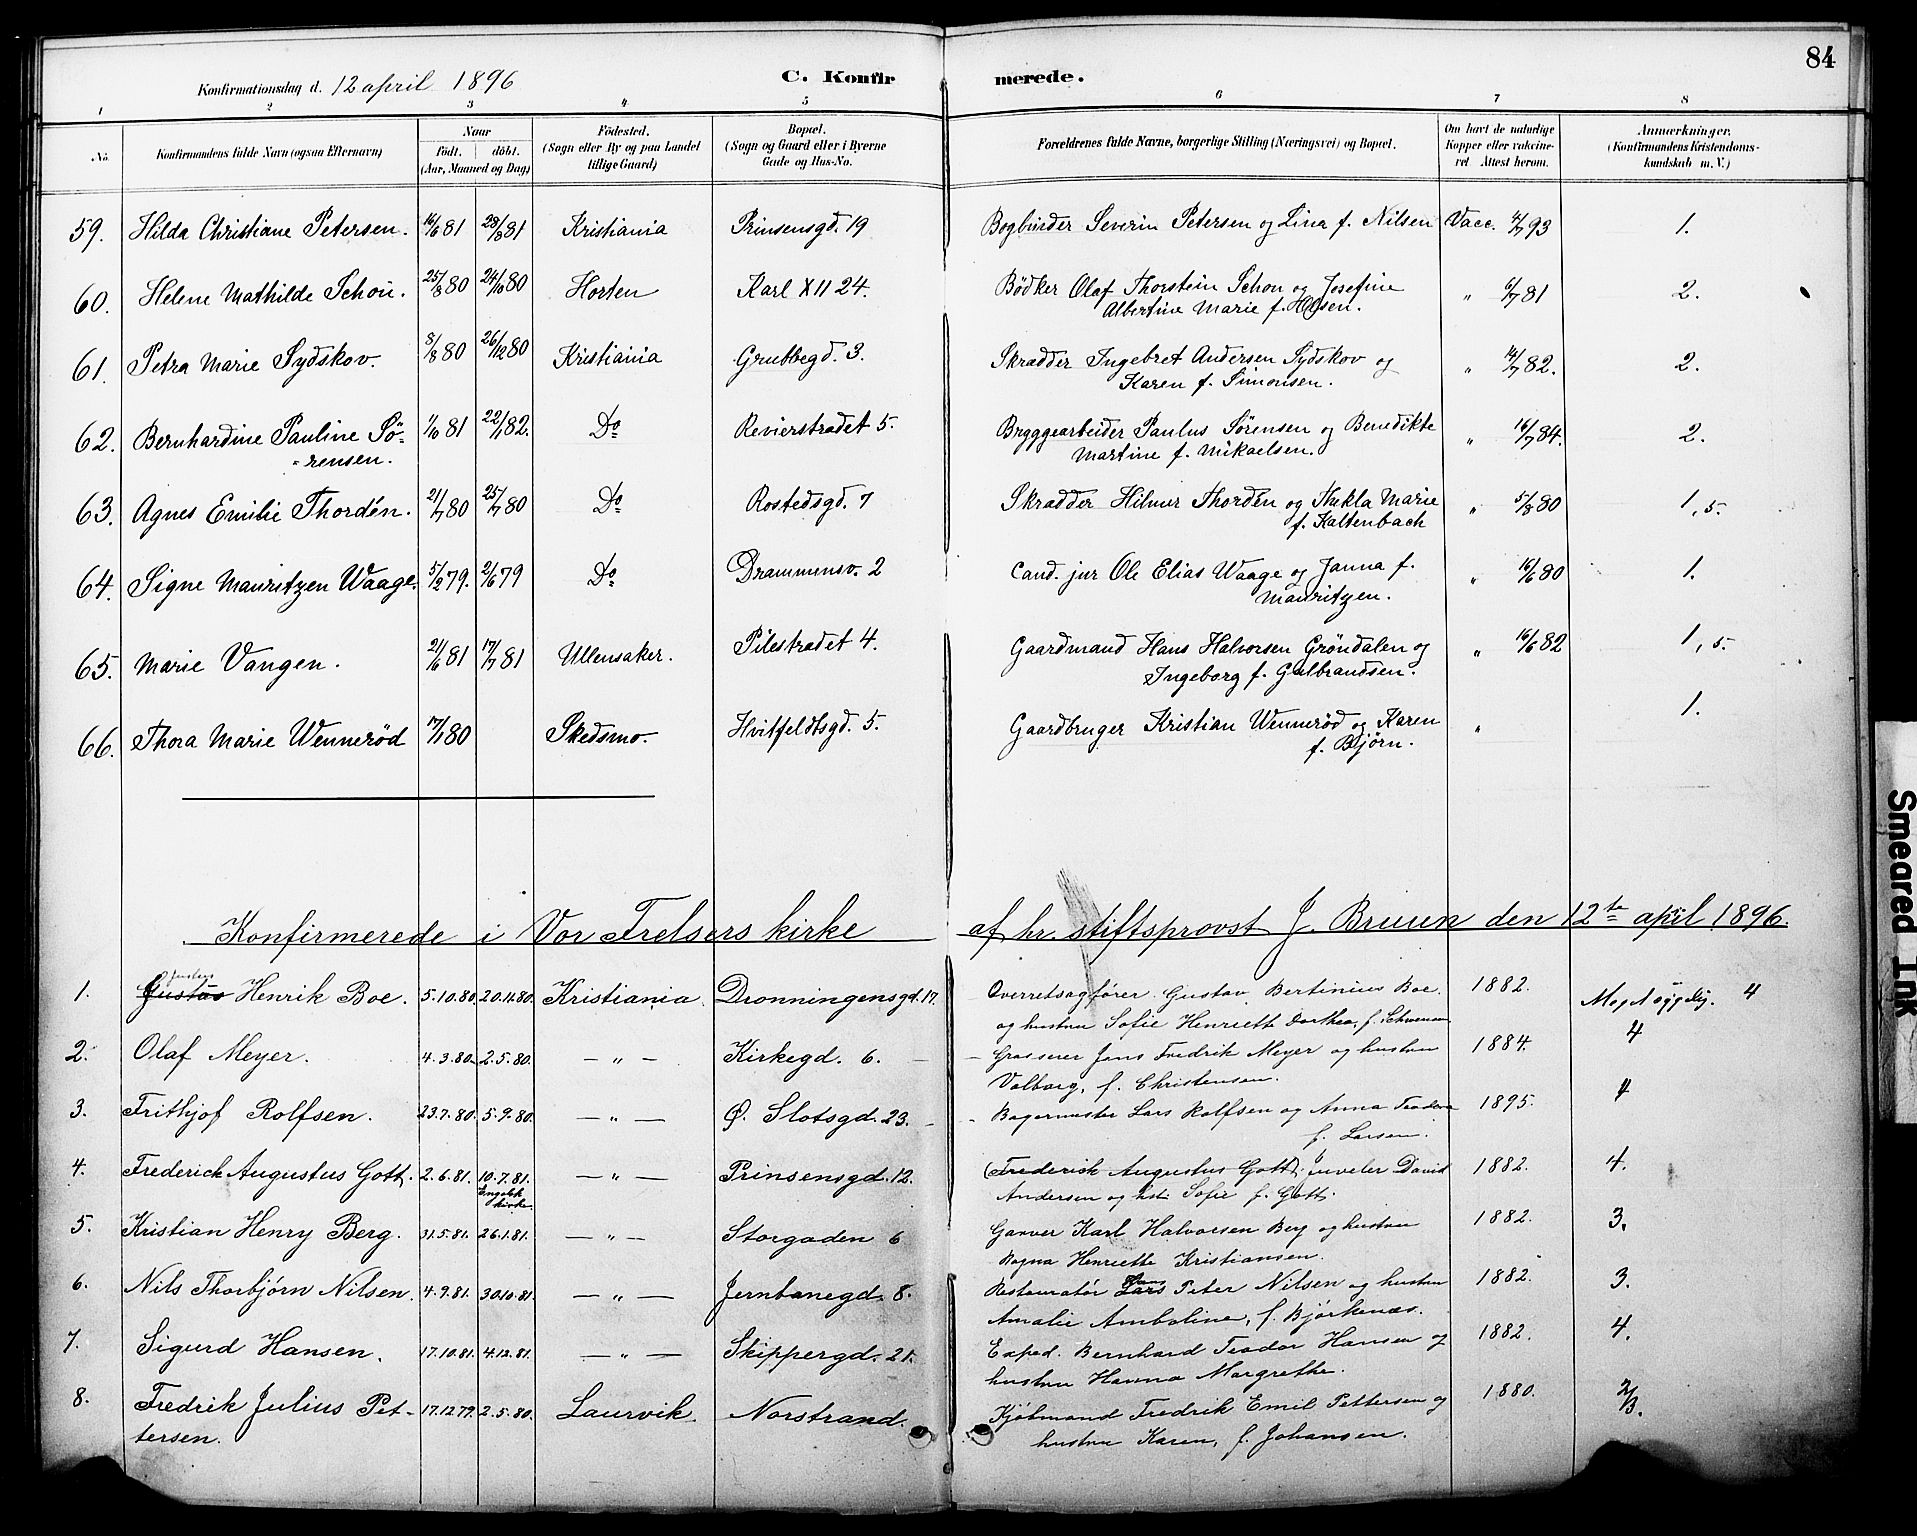 84
Konfirmationsdag d. 12 april 1896
C. Konfirmerede.
1 2 3 4 5 6 7 8
No. Konfirmandens fulde Navn (ogsaa Efternavn) Naar født, døbt. (Aar, Maaned og Dag) Födested. (Sogn eller By og paa Landet tillige Gaard) Bopæl. (Sogn og Gaard eller i Byerne Gade og Hus-No. Forældrenes fulde Navne, borgerlige Stilling (Næringsvei) og Bopæl. Om havt de naturlige Kopper eller vaccineret. Attest herom. Anmærkninger. (Konfirmandens Kristendomskundskab m. V.)
59. Hilda Christiane Petersen. 16/6 81 28/8 81 Kristiania Prinsensgd. 19 Bogbinder Severin Petersen og Lina f. Nilsen Vacc. 4/7 93 1.
60. Helene Mathilde Schou. 25/8 80 24/10 80 Horten Karl XII 24. Bödker Olaf Thorstein Schou og Josefine " 6/7 81 2.
Albertine Marie f. Olsen.
61. Petra Marie Sydskov. 8/8 80 26/12 80 Kristiania Grubbegd. 3. Skrædder Ingebret Andersen Sydskov og " 14/7 82. 2.
Karen f. Simonsen.
62. Bernhardine Pauline Sö- 1/10 81 22/1 82. Do Revierstrædet 5. Bryggearbeider Paulus Sørensen og Benedikte " 16/7 84. 2.
=rensen. Martine f. Mikaelsen.
63. Agnes Emilie Thordén. 21/7 80 25/7 80 Do Rostedsgd. 7 Skrædder Hilmer Thordén og Thekla Marie " 5/8 80 1,5.
f. Kaltenbach
64. Signe Mauritzen Waage. 5/2 79. 2/6 79 Do Drammensv. 2 Cand. jur Ole Elias Waage og Janna f. " 16/6 80 1.
Mauritzen.
65. Marie Vangen. 21/6 81 17/7 81 Ullensaker. Pilestrædet 4. Gaardmand Hans Halvorsen Gröndalen og " 16/6 82 1,5.
Ingeborg f. Gulbrandsen.
66. Thora Marie Wennerød 17/1 80 Skedsmo. Hvitfeldtsgd. 5. Gaardbruger Kristian Wennerød og Karen " 1.
f. Bjørn.
Konfirmerede i Vor Frelsers kirke af hr. stiftsprovst J. Bruun den 12te april 1896.
1. Gustav Henrik Boe. 5.10.80. 20.11.80. Kristiania. Dronningensgd. 17. Overretssagfører Gustav Bertinius Boe 1882. Meg. Nöggelig. 4
og hustru Sofie Henriette Dorthea, f.
2. Olaf Meyer. 4.3.80. 2.5.80. — " — Kirkegd. 6. Grosserer Jens Fredrik Meyer og hustru 1884. 4
Valborg, f. Christensen.
3. Frithjof Rolfsen. 23.7.80. 5.9.80. — " — Ø. Slotsgd. 23. Bagermester Lars Rolfsen og Anna Teodora 1895. 4
f. Larsen.
4. Frederick Augustus Gott. 2.6.81. 10.7.81. — " — Prinsensgd. 12. (Frederik Augustus Gott) Juveler David 1882. 4.
Engelsk kirke. Andersen og hst. Sofie f. Gott.
5. Kristian Henry Berg. 31.5.81. 26.1.81. — " — Storgaden 6 Garver Karl Halvorsen Berg og hustru 1882. 3.
Ragna Henriette Kristiansen.
6. Nils Thorbjørn Nilsen. 4.9.81. 30.10.81. — " — Jernbanegd. 8. Restauratør Hans Peter Nilsen og hustru 1882. 3.
Amalie Amboline, f. Bjørkenæs.
7. Sigurd Hansen. 17.10.81. 4.12.81. — " — Skippergd. 21. Exped. Bernhard Teodor Hansen og 1882. 4.
hustru Hanna Margrethe.
8. Fredrik Julius Pet- 17.12.79. 2.5.80. Laurvik. Norstrand. Kjøbmand Fredrik Emil Pettersen og 1880. 2/3.
tersen. hustru Karen, f. Johansen.
Smeared Ink